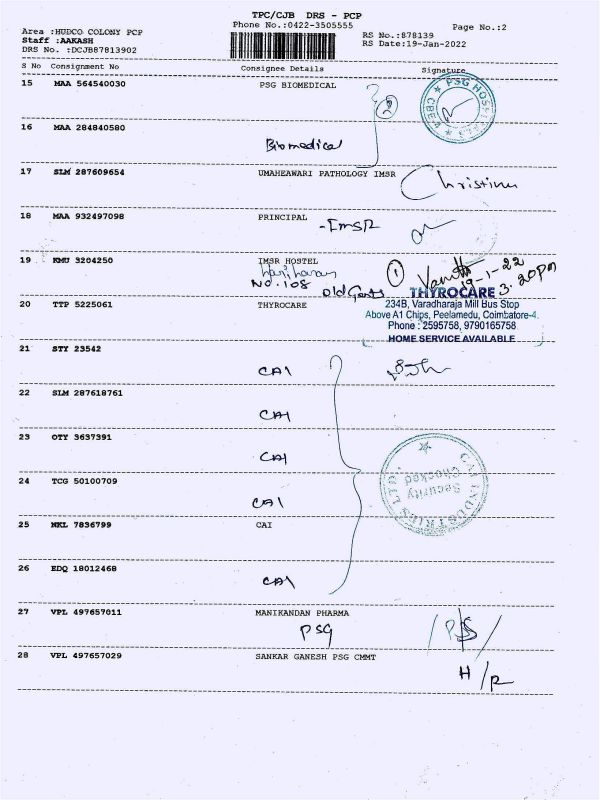 TPC/CJB DRS - PCP
Phone No.:0422-3505555
Page No.:2
Area :HUDCO COLONY PCP
Staff :AAKASH
DRS No. :DCJB87813902
RS No.:878139
RS Date:19-Jan-2022
S No Consignment No Consignee Details Signature
15 MAA 564540030 PSG BIOMEDICAL
PSG HOSPITALS
CBE-4
16 MAA 284840580
Biomedical
17 SLM 287609654 UMAHEAWARI PATHOLOGY IMSR
Christinu
18 MAA 932497098 PRINCIPAL
-IMSR
19 KMU 3204250 IMSR HOSTEL
Hariharan
NO.108 Old Gents
1
19-1-22
3.20pm
20 TTP 5225061 THYROCARE
THYROCARE
234B, Varadharaja Mill Bus Stop
Above A1 Chips, Peelamedu, Coimbatore-4.
Phone : 2595758, 9790165758
HOME SERVICE AVAILABLE
21 STY 23542
CAI
22 SLM 287618761
CAI
23 OTY 3637391
CAI
24 TCG 50100709
CAI
Security
Checked
CAI INDUSTRIES
25 NKL 7836799 CAI
26 EDQ 18012468
CAI
27 VPL 497657011 MANIKANDAN PHARMA
PSG
28 VPL 497657029 SANKAR GANESH PSG CMMT
H/R